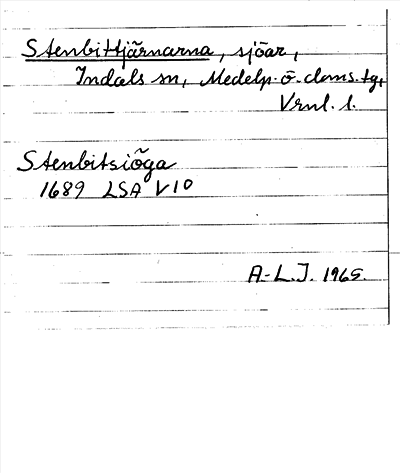 Stenbittjärnarna, sjöar,
Indals sn, Medelp. ö. doms. tg,
Vrnl. l.
Stenbitsiöga
1689 LSA V10
A.-L.J. 1965.